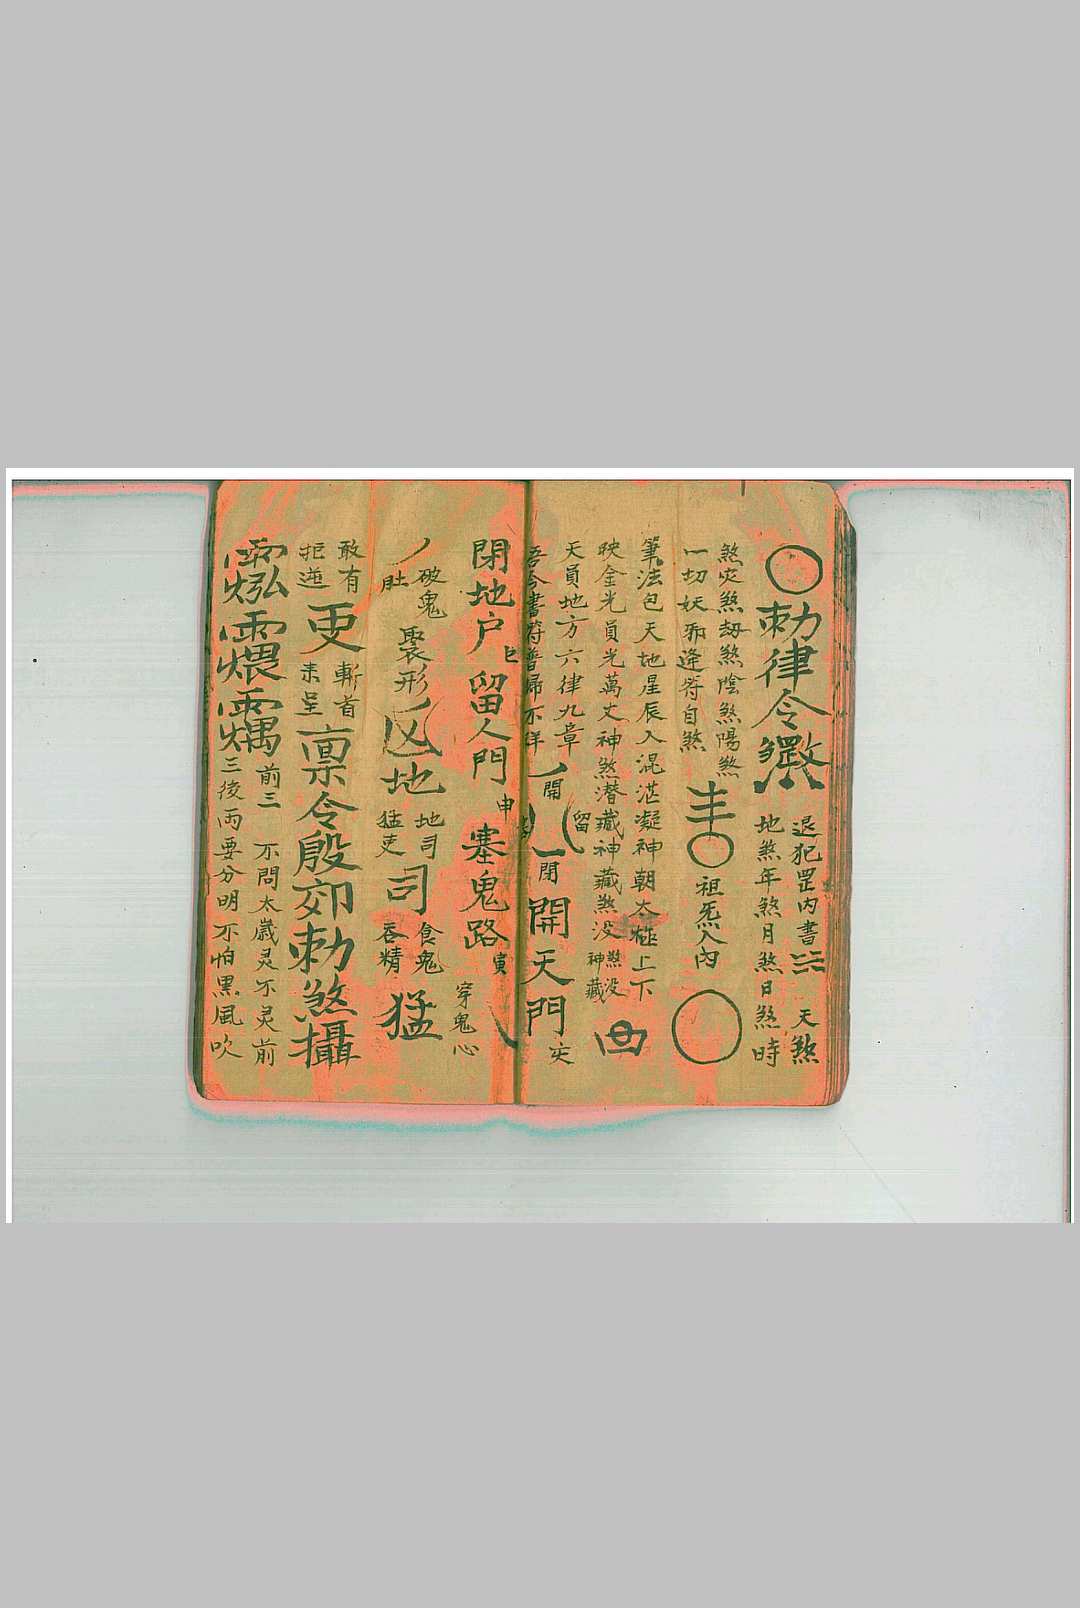 勅律令
退犯罡内書
天煞
地煞年煞月煞日煞時
煞灾煞劫煞陰煞陽煞
一切妖邪逢符自煞
祖炁入内
筆法包天地星辰入混沌凝神朝太極上下
映金光員光萬丈神煞潜藏神藏煞没
煞没
神藏
天員地方六律九章
吾今書符普掃不祥
開
留
閉
開天門
閉地户
留人門
申
塞鬼路
寅
穿鬼心
破鬼
肚
聚形
凶地
地司
猛吏
司
食鬼
吞精
猛
敢有
拒逆
更
斬首
来呈
禀令殷郊勅煞攝
前三
三後
不問太歳灵不灵前
両要分明不怕黒風吹